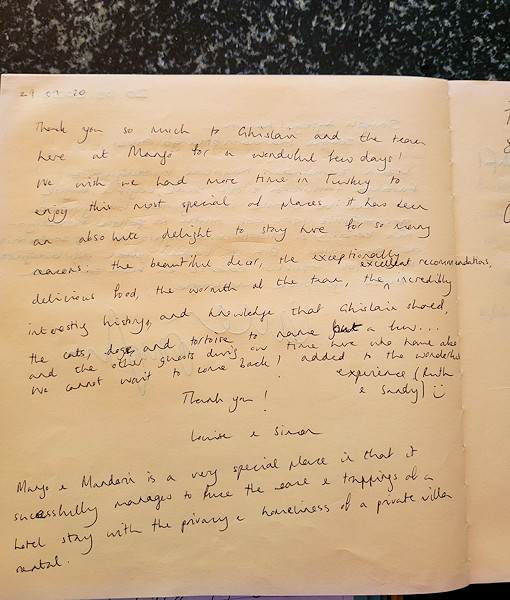 29 07 20
Thank you so much to Ghislain and the team
here at Mango for a wonderful few days!
We wish we had more time in Turkey to
enjoy this most special of places, it has been
an absolute delight to stay here for so many
reasons: the beautiful decor, the exceptionally
excellent recommendations,
delicious food, the warmth of the team, the incredibly
interesting history, and knowledge that Ghislain shared,
the cats, dogs, and tortoise to name but a few...
and the other guests during our time here who have also
we cannot want to come back! added to the wonderful
experience (Ruth
Thank you! & Sandy) ☺
Louise & Simon
Mango & Mandarin is a very special place in that it
sucessfully manages to fuse the ease & trappings of a
hotel stay with the privacy & homeliness of a private villa
rental.